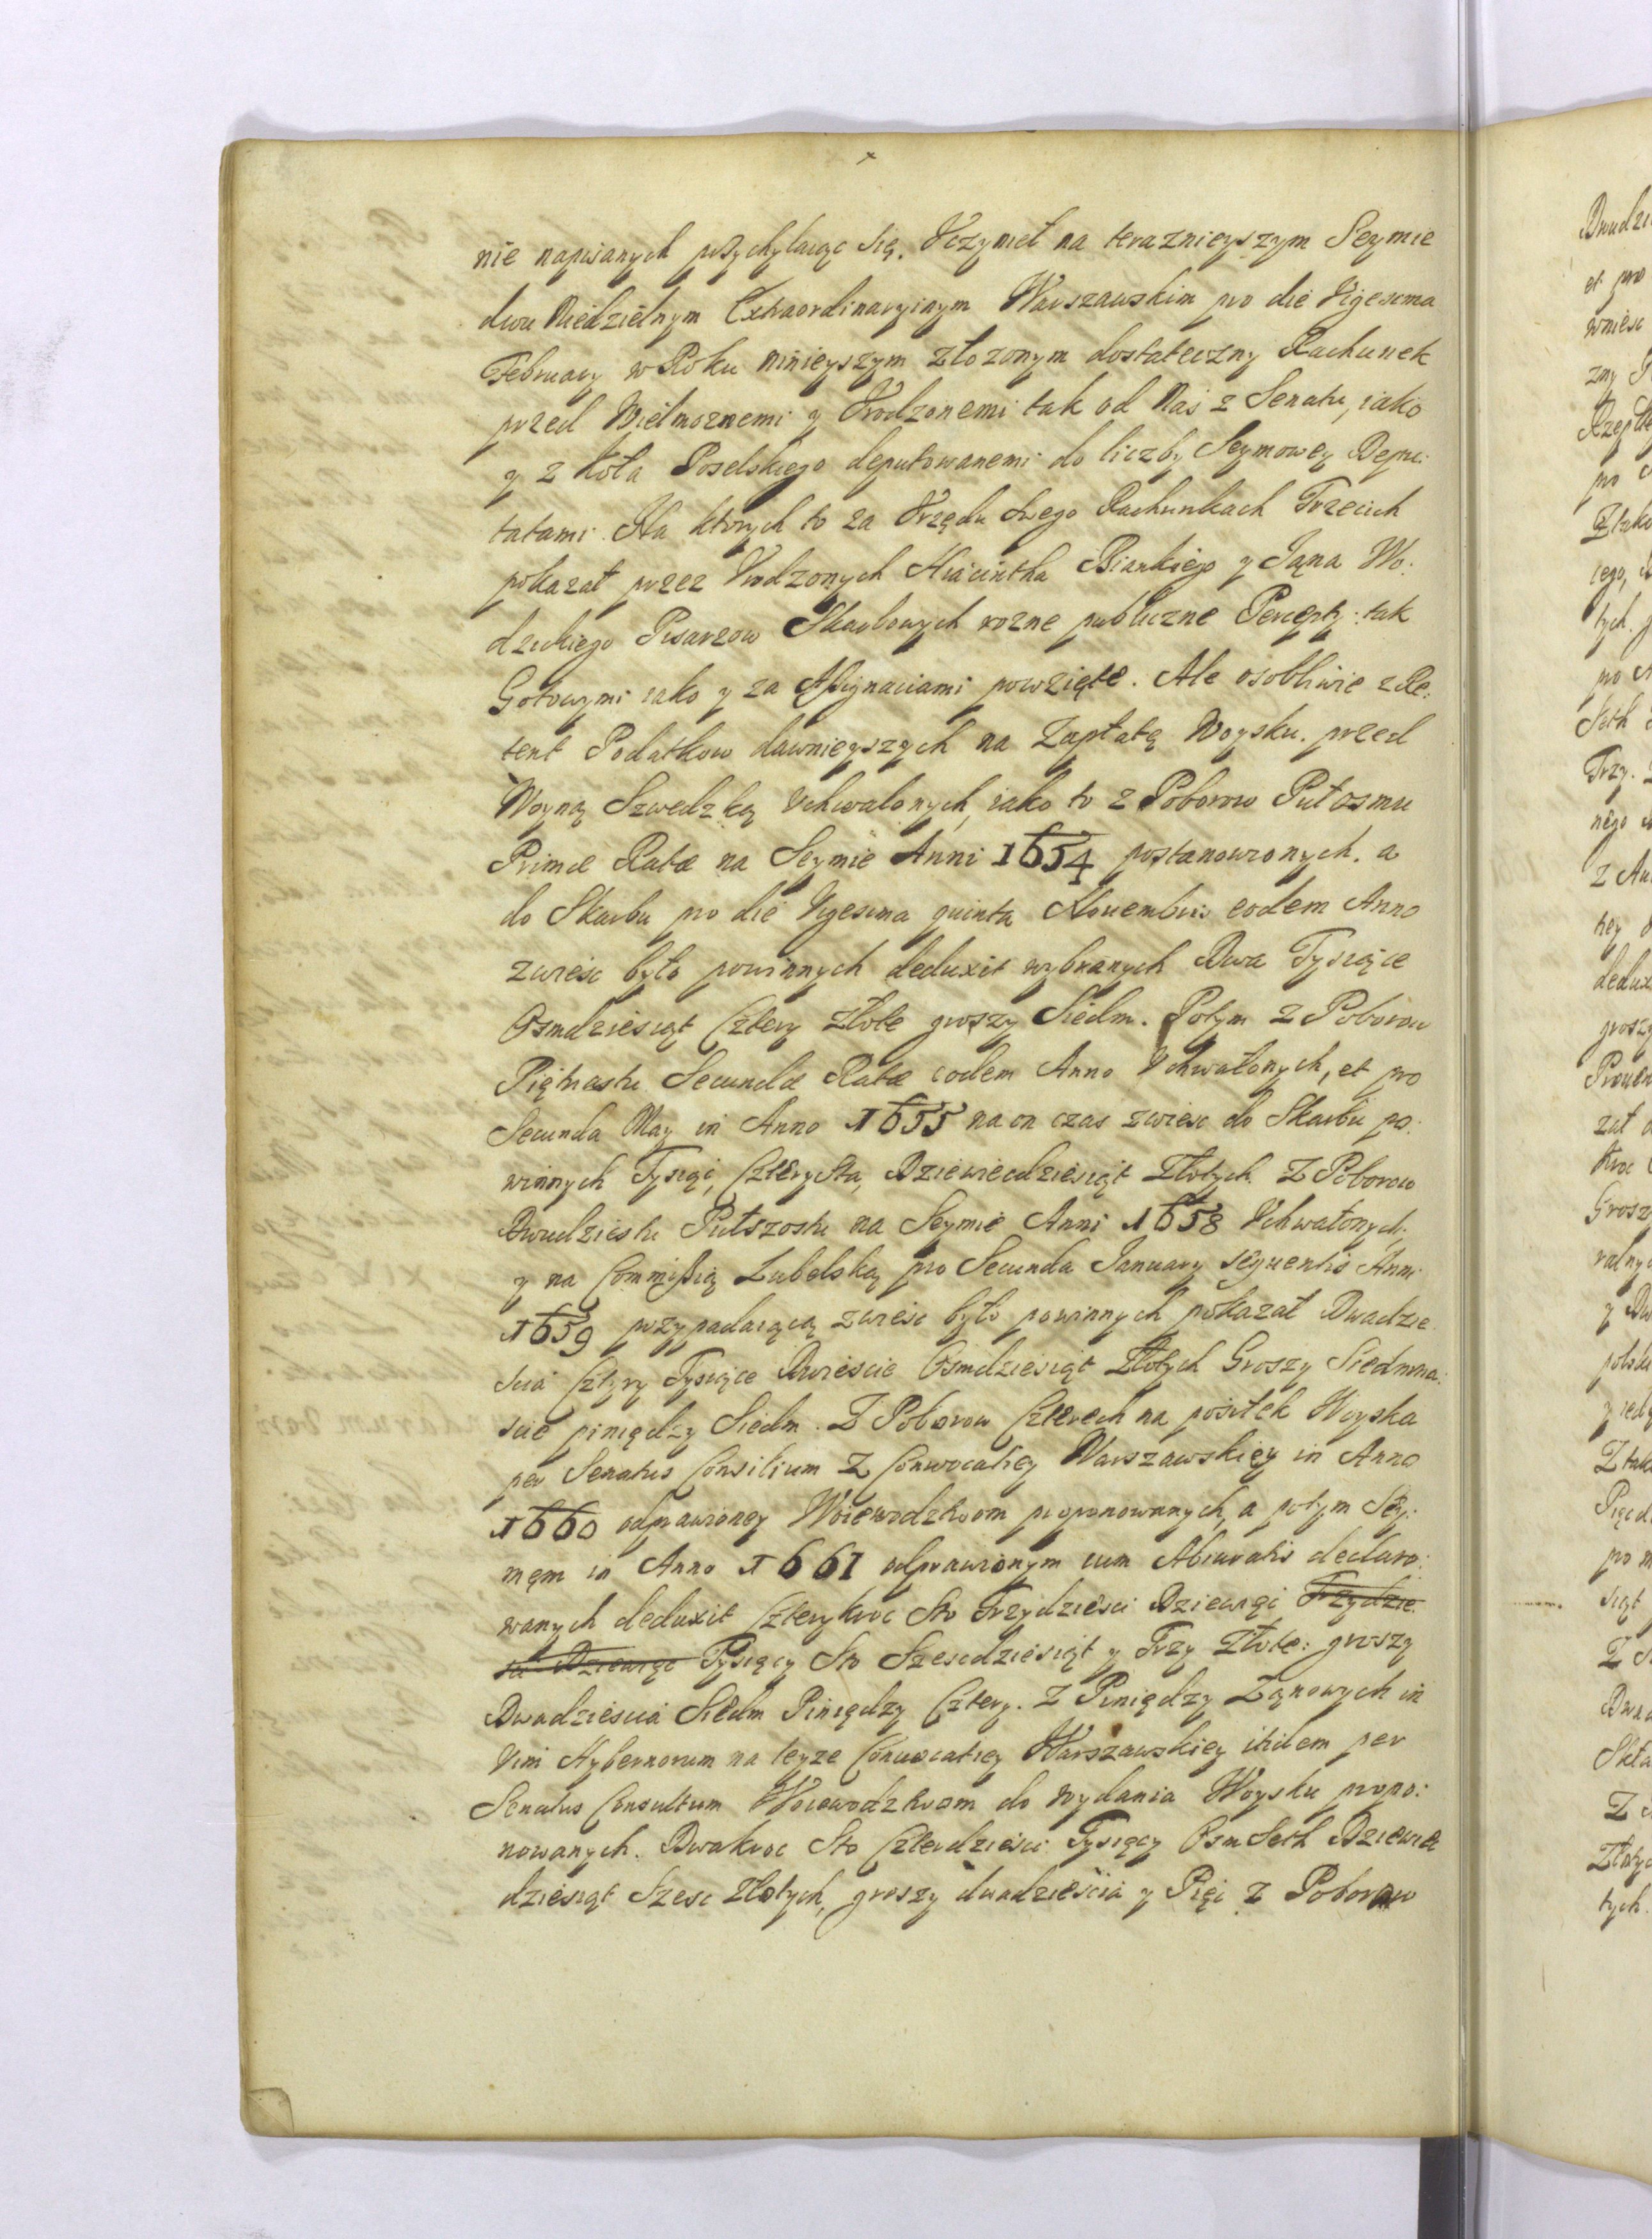 nie napisanych przychylaiąc się. Vczynił na teraznieyszym Seymie
dwu Niedzielnym Extraordinaryinym Warszawskim pro die Vigesima
February w Roku ninieyszym złozonym dostateczny Rachunek
przed Wielmoznemi y Vrodzonemi tak od Nas z Senatu, iako
y z Koła Poselskiego deputowanemi do liczby Seymowey Depu:
tatami. Na ktorych to za Vrzędu swego Rachunkach Trzecich
pokazał przez Vrodzonych Hiacintha Piarskiego y Jana Wo:
dzickiego Pisarzow Skarbowych rozne publiczne Percepty: tak
Gotowymi iako y za Assignaciami powzięte. Ale osobliwie z Re:
tent Podatkow dawnieyszych na Zapłatę Woysku. przed
Woyną Szwedzką Vchwalonych, iako to z Poborow Puł osmu
Primæ Ratæ na Seymie Anni 1654 postanowionych. a
do Skarbu pro die Vigesima quinta Nouembris eodem Anno
zwiesc było powinnych deduxit wybranych Dwa Tysiące
Osmdziesiąt Cztery złote groszy Siedm. Potym z Poborow
Piętnastu Secundæ Ratæ eodem Anno Vchwalonych, et pro
Secunda May in Anno 1655 na on czas zwiesc do Skarbu po:
winnych Tysiąc, Czterysta, Dziewiecdziesiąt Złotych. Z Poborow
Dwudziestu Pułszostu na Seymie Anni 1658 Vchwalonych,
y na Commissią Lubelską pro Secunda January sequentis Anni
1659 przypadaiącą zwiesc było powinnych pokazał Dwadzie
scia Cztyry Tysiące Dwiescie Osmdziesiąt Złotych Groszy Siedmna:
scie piniędzy Siedm. Z Poborow Czterech na posiłek Woyska
per Senatus Consilium Z Conwocatiey Warszawskiey in Anno
1660 odprawioney Woiewodztwom proponowanych, a potym Sey:
mem in Anno 1661 odprawionym cum Abiuratis declaro:
wanych deduxit Czterykroc Sto Trzydziesci Dziewięc Trzydzie
sci Dziewięc Tysięcy Sto Szescdziesiąt y Trzy Złote: groszy
Dwadziescia Siedm Piniędzy Cztery. Z Piniędzy Łanowych in
Vim Hybernorum na teyze Conuocatiey Warszawskiey itidem per
Senatus Consultum Woiewodztwom do wydania Woysku propo:
nowanych. Dwakroc Sto Czterdziesci Tysięcy Osm Seth Dziewie
dziesiąt Szesc Złotych, groszy dwadziescia y Pięc z Poborow